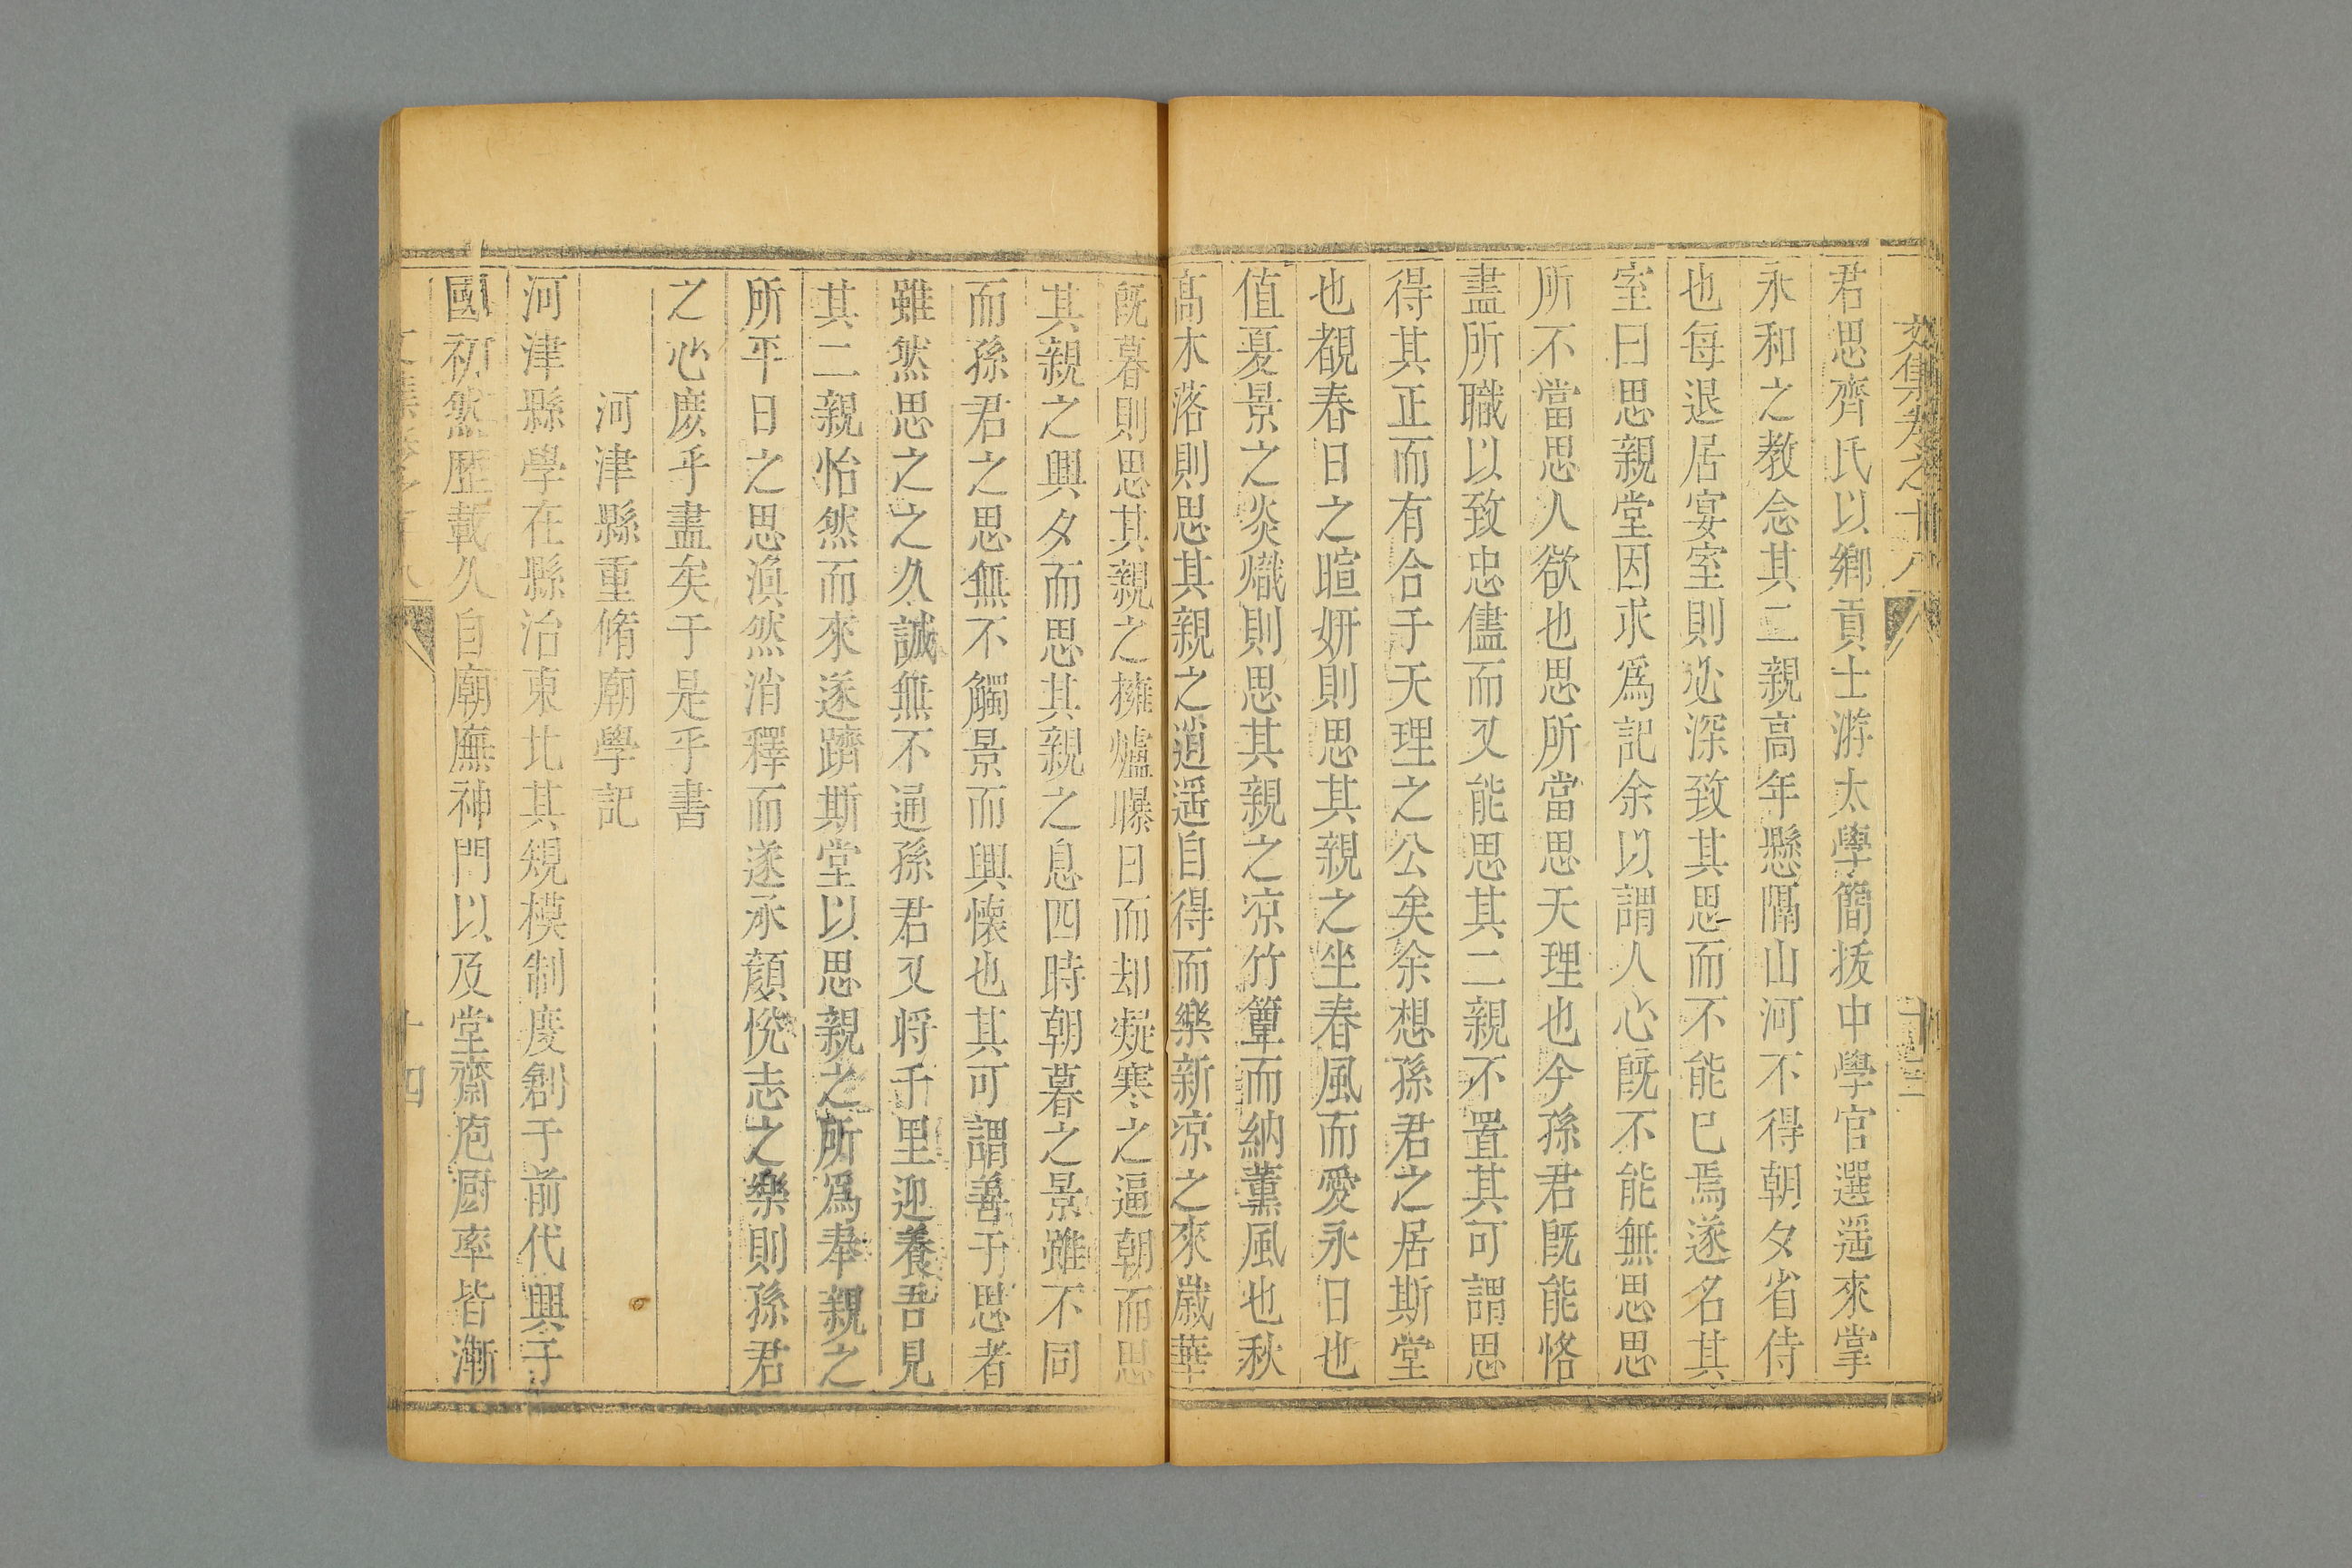 文集卷之十八
十三
君思齊氏以鄉貢士游太學簡拔中學官選遥來掌
永和之教念其二親高年懸隔山河不得朝夕省侍
也每退居宴室則必深致其思而不能已焉遂名其
室曰思親堂因求爲記余以謂人心旣不能無思思
所不當思人欲也思所當思天理也今孫君旣能恪
盡所職以致忠儘而又能思其二親不置其可謂思
得其正而有合于天理之公矣余想孫君之居斯堂
也覩春日之暄妍則思其親之坐春風而愛永日也
值夏景之炎熾則思其親之凉竹簟而納薰風也秋
高木落則思其親之逍遥自得而樂新凉之來歲華
旣暮則思其親之擁爐曝日而却凝寒之逼朝而思
其親之興夕而思其親之息四時朝暮之景雖不同
而孫君之思無不觸景而興懷也其可謂善于思者
雖然思之之久誠無不通孫君又将千里迎養吾見
其二親怡然而來遂躋斯堂以思親之所爲奉親之
所平日之思渙然消釋而遂承顔悅志之樂則孫君
之心庶乎盡矣于是乎書
河津縣重脩廟學記
河津縣學在縣治東北其規模制度創于前代興于
國初然歷載久自廟廡神門以及堂齋庖厨率皆漸
文集卷之十八
十四